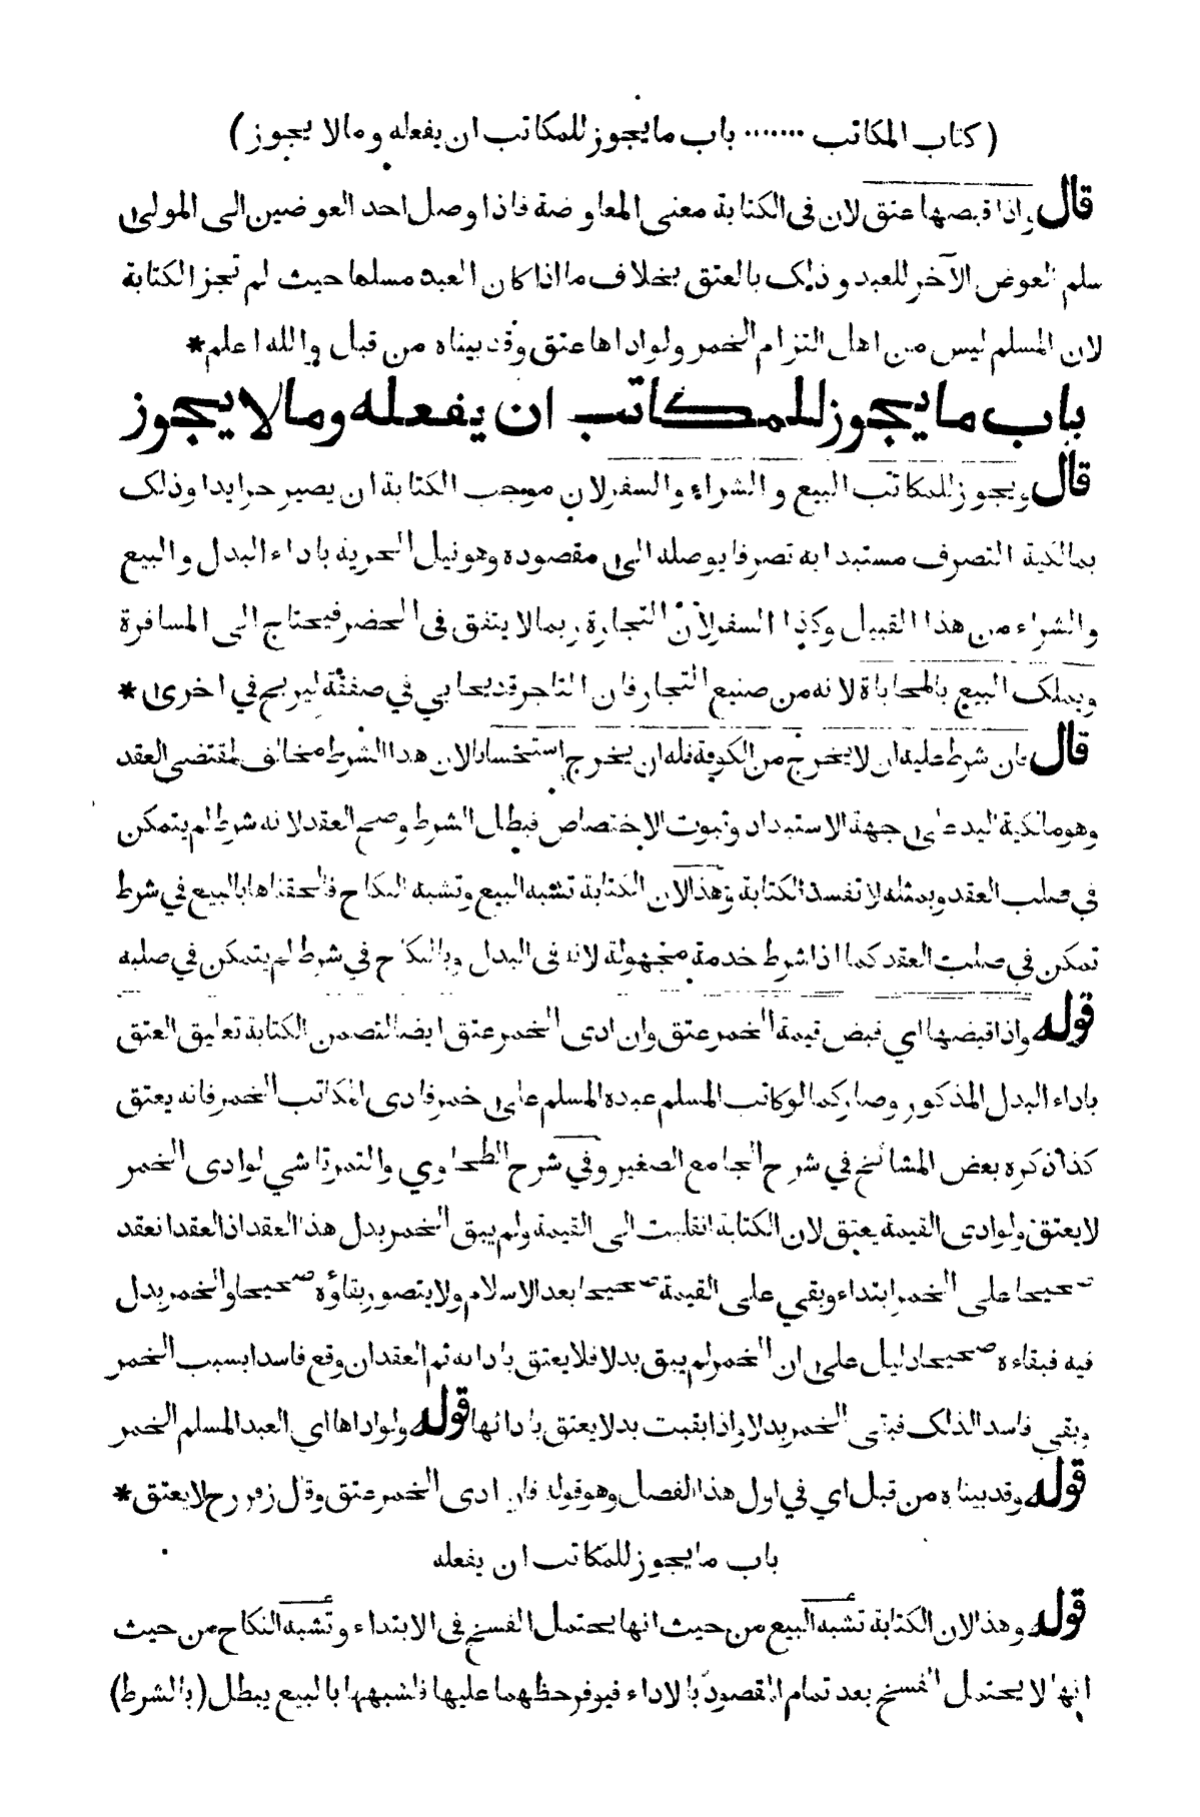 (كتاب المكاتب ....... باب ما يجوز للمكاتب ان يفعله وما لا يجوز)
قال واذا قبضها عتق لان في الكتابة معنى المعاوضة فاذا وصل احد العوضين الى المولى
سلم العوض الآخر للعبد وذلك بالعتق بخلاف ما اذا كان العبد مسلما حيث لم تجز الكتابة
لان المسلم ليس من اهل التزام الخمر ولو اداها عتق وقد بيناه من قبل والله اعلم*
باب ما يجوز للمكاتب ان يفعله وما لا يجوز
قال ويجوز للمكاتب البيع والشراء والسفر لان موجب الكتابة ان يصير حرا يدا وذلك
بمالكية التصرف مستبدا به تصرفا يوصله الى مقصوده وهو نيل الحرية باداء البدل والبيع
والشراء من هذا القبيل وكذا السفر لان التجارة ربما لا يتفق في الحضر فيحتاج الى المسافرة
ويملك البيع بالمحاباة لانه من صنيع التجار فان التاجر قد يحابي في صفقة ليربح في اخرى*
قال فان شرط عليه ان لا يخرج من الكوفة فله ان يخرج استحسانا لان هذا الشرط مخالف لمقتضى العقد
وهو مالكية اليد على جهة الاستبداد وثبوت الاختصاص فبطل الشرط وصح العقد لانه شرط لم يتمكن
في صلب العقد وبمثله لا تفسد الكتابة وهذا لان الكتابة تشبه البيع وتشبه النكاح فالحقناها بالبيع في شرط
تمكن في صلب العقد كما اذا شرط خدمة مجهولة لانه في البدل وبالنكاح في شرط لم يتمكن في صلبه
قوله واذا قبضها اي قبض قيمة الخمر عتق وان ادى الخمر عتق ايضا لتضمن الكتابة تعليق العتق
باداء البدل المذكور وصار كما لو كاتب المسلم عبده المسلم على خمر فادى المكاتب الخمر فانه يعتق
كذا ذكره بعض المشائخ في شرح الجامع الصغير وفي شرح الطحاوي والتمرتاشي لو ادى الخمر
لا يعتق ولو ادى القيمة يعتق لان الكتابة انقلبت الى القيمة ولم يبق الخمر بدل هذا العقد اذ العقد انعقد
صحيحا على الخمر ابتداء وبقي على القيمة صحيحا بعد الاسلام ولا يتصور بقاؤه صحيحا والخمر بدل
فيه فبقاءه صحيحا دليل على ان الخمر لم يبق بدلا فلا يعتق بادائه ثم العقد ان وقع فاسدا بسبب الخمر
وبقي فاسدا لذلك فبقى الخمر بدلا واذا بقيت بدلا يعتق بادائها قوله ولو اداها اي العبد المسلم الخمر
قوله وقد بيناه من قبل اي في اول هذا الفصل وهو قوله فان ادى الخمر عتق وقال زفر رح لا يعتق*
باب ما يجوز للمكاتب ان يفعله
قوله وهذا لان الكتابة تشبه البيع من حيث انها يحتمل الفسخ في الابتداء وتشبه النكاح من حيث
انها لا يحتمل الفسخ بعد تمام المقصود بالاداء فيوفر حظهما عليها فلشبهها بالبيع يبطل (بالشرط)